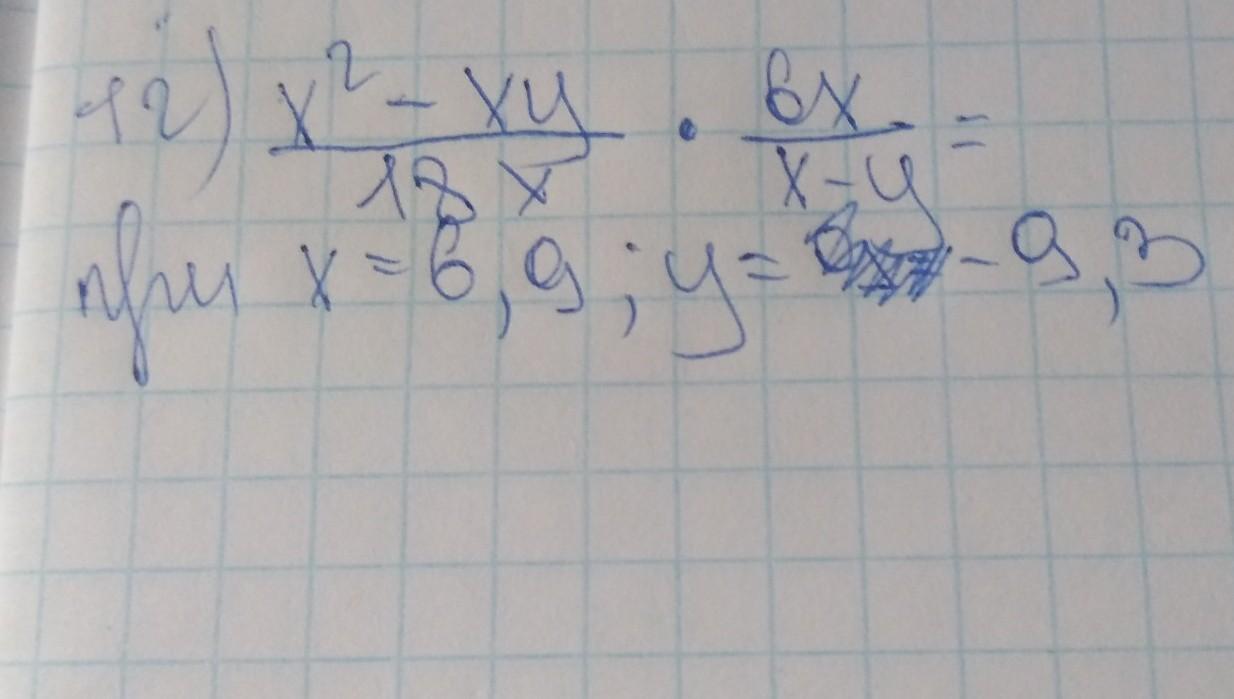 12) x² - xy / 18x · 6x / x-y =
при x = 6,9; y = -9,3